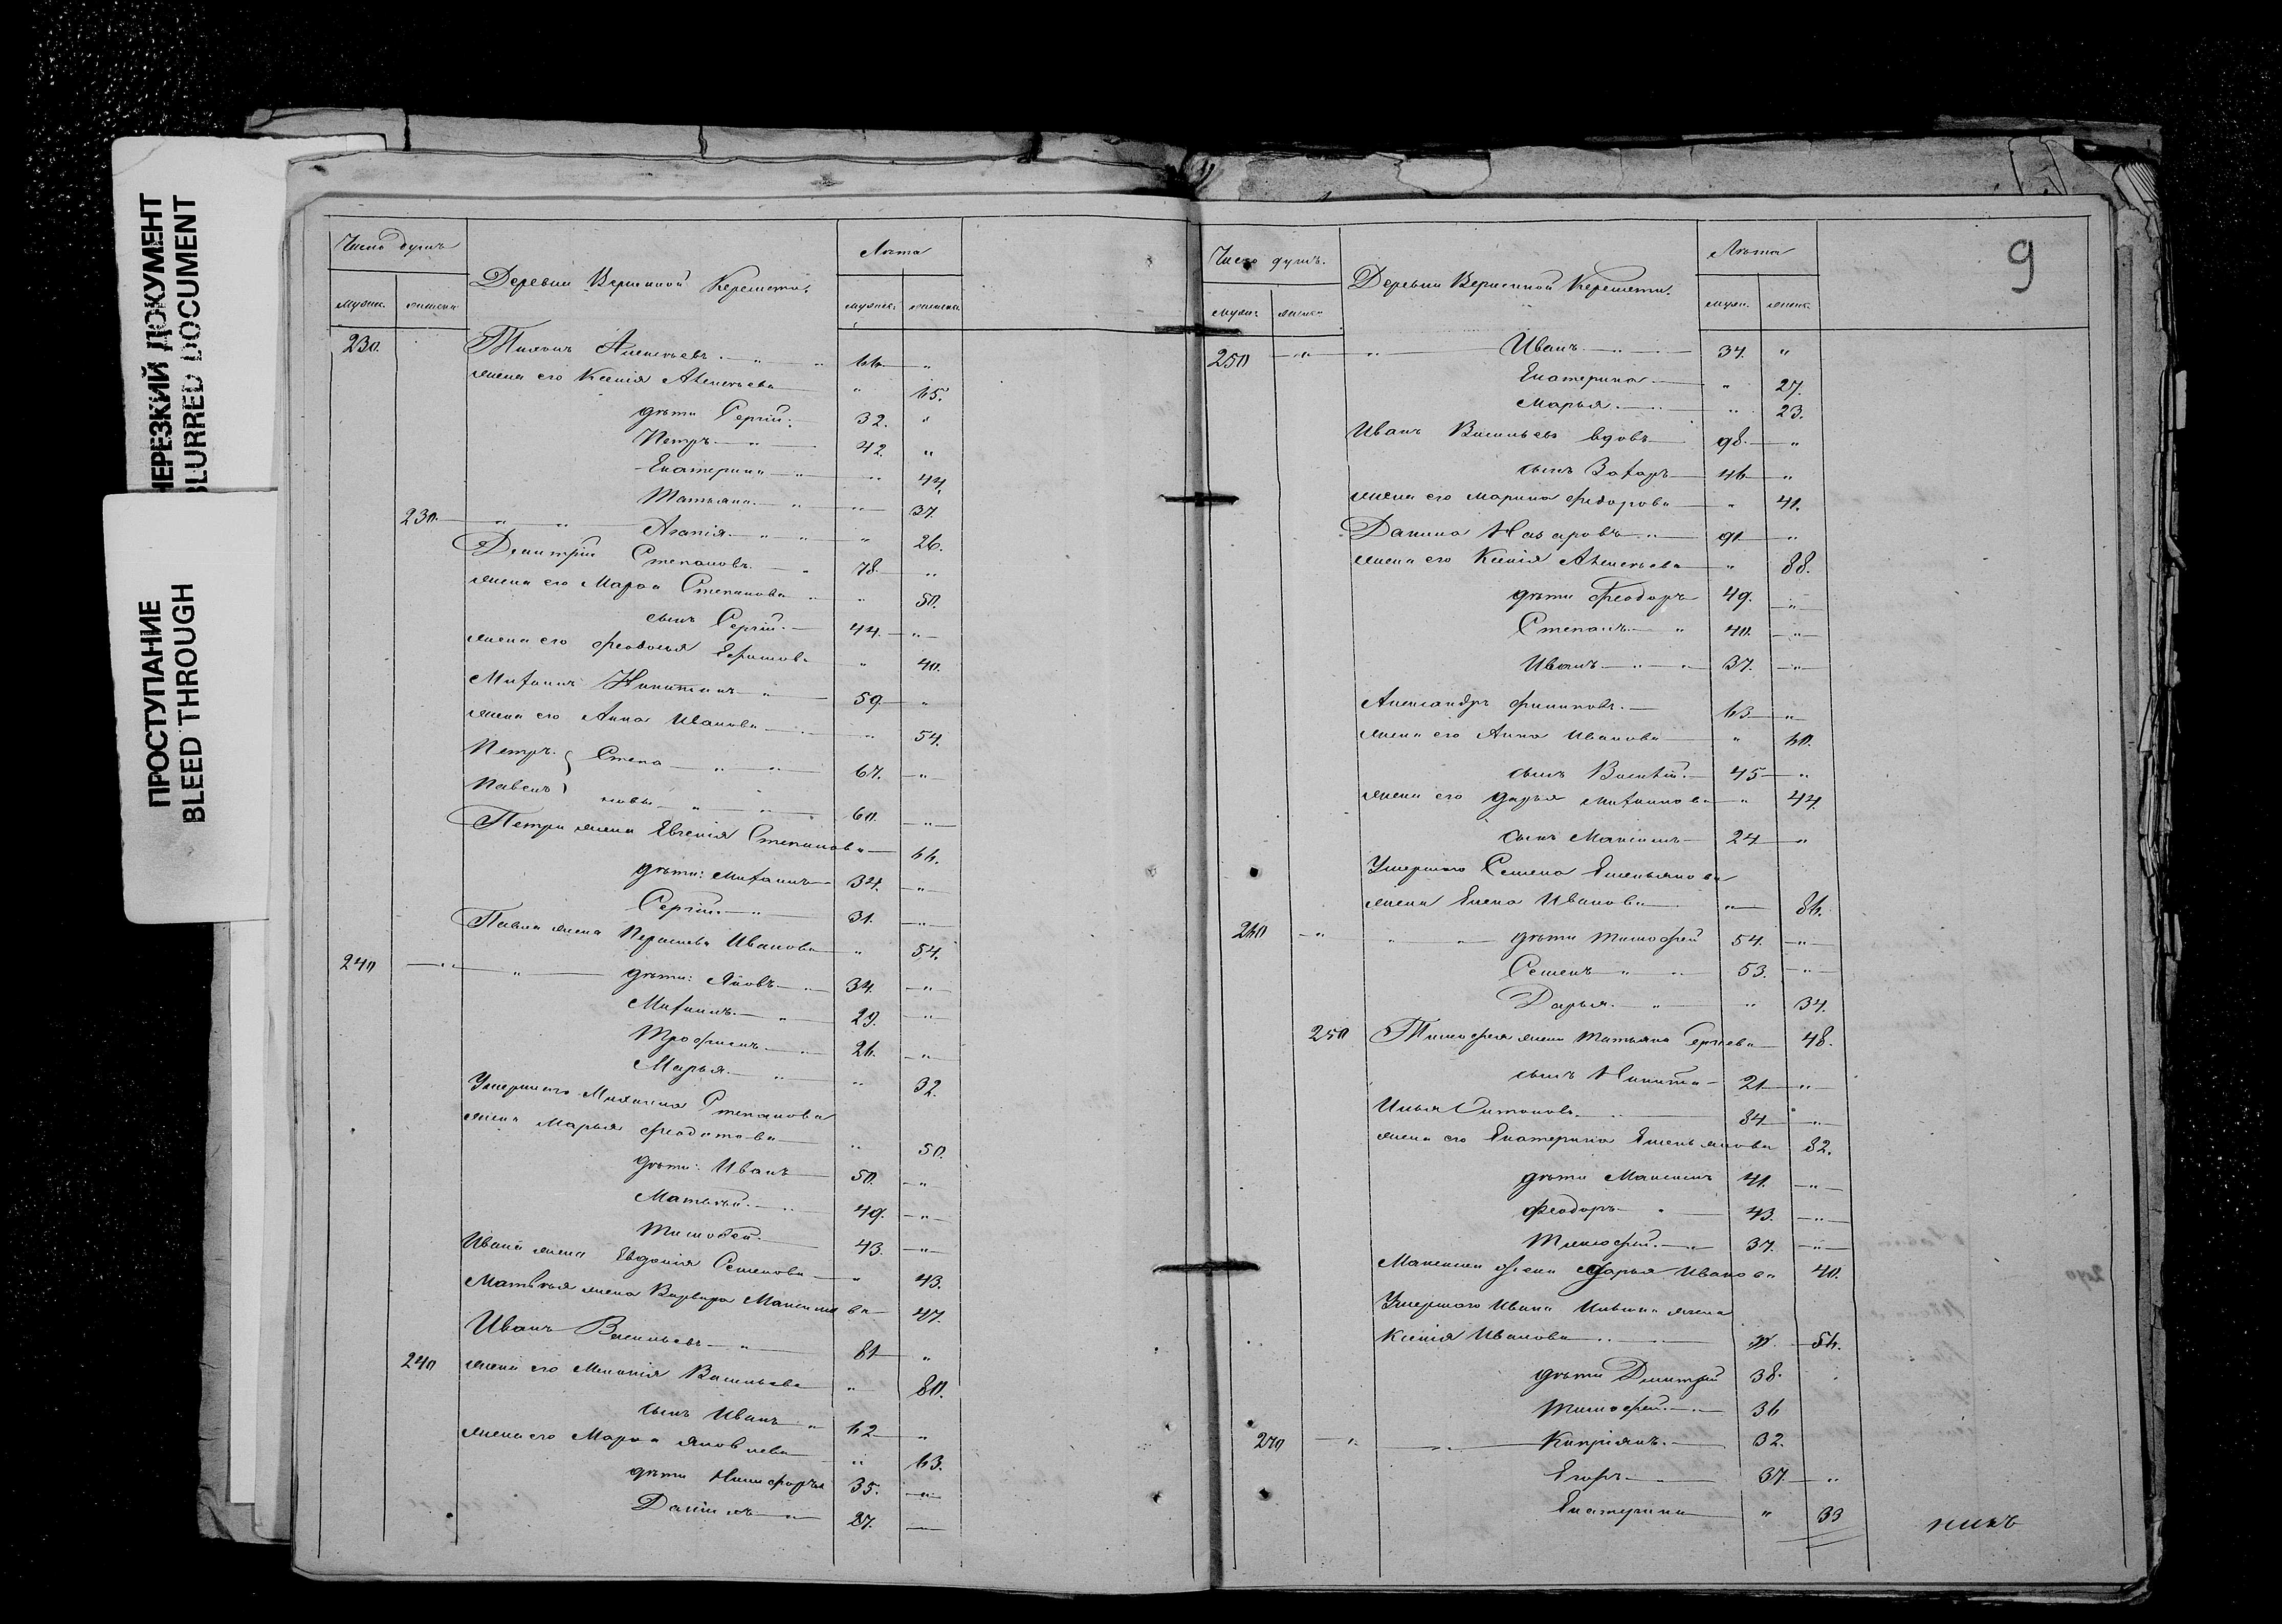 НЕРЕЗКИЙ ДОКУМЕНТ
BLURRED DOCUMENT
ПРОСТУПАНИЕ
BLEED THROUGH
Число душъ
Лѣта
Деревни Вершинной Керешети.
мужск. женск. мужск. женск.
230. Тихонъ Алексѣевъ 66 "
жена его Ксенія Алексѣева " 65.
дѣти Сергій 32. "
Петръ 42. "
Екатерина " 44.
Татьяна " 37.
230. Агапія " 26.
Дмитрій Степановъ 78. "
жена его Марѳа Степанова " 50.
сынъ Сергій 44. "
жена его Ѳедосья Ефимова " 40.
Михаилъ Никитинъ 59. "
жена его Анна Иванова " 54.
Петръ } Степа 67. "
Павелъ } новы 60. "
Петра жена Евгенія Степанова 66.
дѣти: Михаилъ 34. "
Сергій 31. "
Павла жена Иванова " 54.
240 дѣти: Яковъ 34. "
Михаилъ 29. "
Трофимъ 26. "
Марья " 32.
Умершаго Михаила Степанова
жена Марья Ѳедотова " 50.
дѣти: Иванъ 50. "
Матвѣй 49. "
Тимофей 43. "
Ивана жена Евдокія Семенова " 43.
Матвѣя жена Варвара Максимова 47.
Иванъ Васильевъ 81 "
240 жена его Меланія Васильева " 80.
сынъ Иванъ 62 "
жена его Марѳа Яковлева " 63.
дѣти Никифоръ 35. "
Даніилъ 27. "
9
Число душъ.
Лѣта
Деревни Вершинной Керешети.
мужск. женск. мужск. женск.
250 Иванъ 34. "
Екатерина " 27.
Марья " 23.
Иванъ Васильевъ вдовъ 98. "
сынъ Захаръ 46 "
жена его Марина Ѳедорова " 41.
Данила Назаровъ 91 "
жена его Ксенія Алексѣева " 88.
дѣти Ѳеодоръ 49. "
Степанъ 40. "
Иванъ 37. "
Александръ Филиповъ 63 "
жена его Анна Иванова " 60.
сынъ Василій 45 "
жена его Дарья Михаилова " 44.
сынъ Максимъ 24 "
Умершаго Семена Емельянова
жена Елена Иванова " 86.
260 дѣти Тимофей 54. "
Семенъ 53. "
Дарья " 34.
250 Тимофея жена Татьяна Сергѣева 48.
сынъ Никита 21 "
Илья Антоновъ 84 "
жена его Екатерина Емельянова 82.
дѣти Максимъ 41. "
Ѳеодоръ 43. "
Тимофей 37. "
Максима жена Дарья Иванова 40.
Умершаго Ивана Ильина жена
Ксенія Иванова 56.
дѣти Дмитрій 38.
Тимофей 36
270 Кипріянъ 32.
Егоръ 37. "
Екатерина " 33